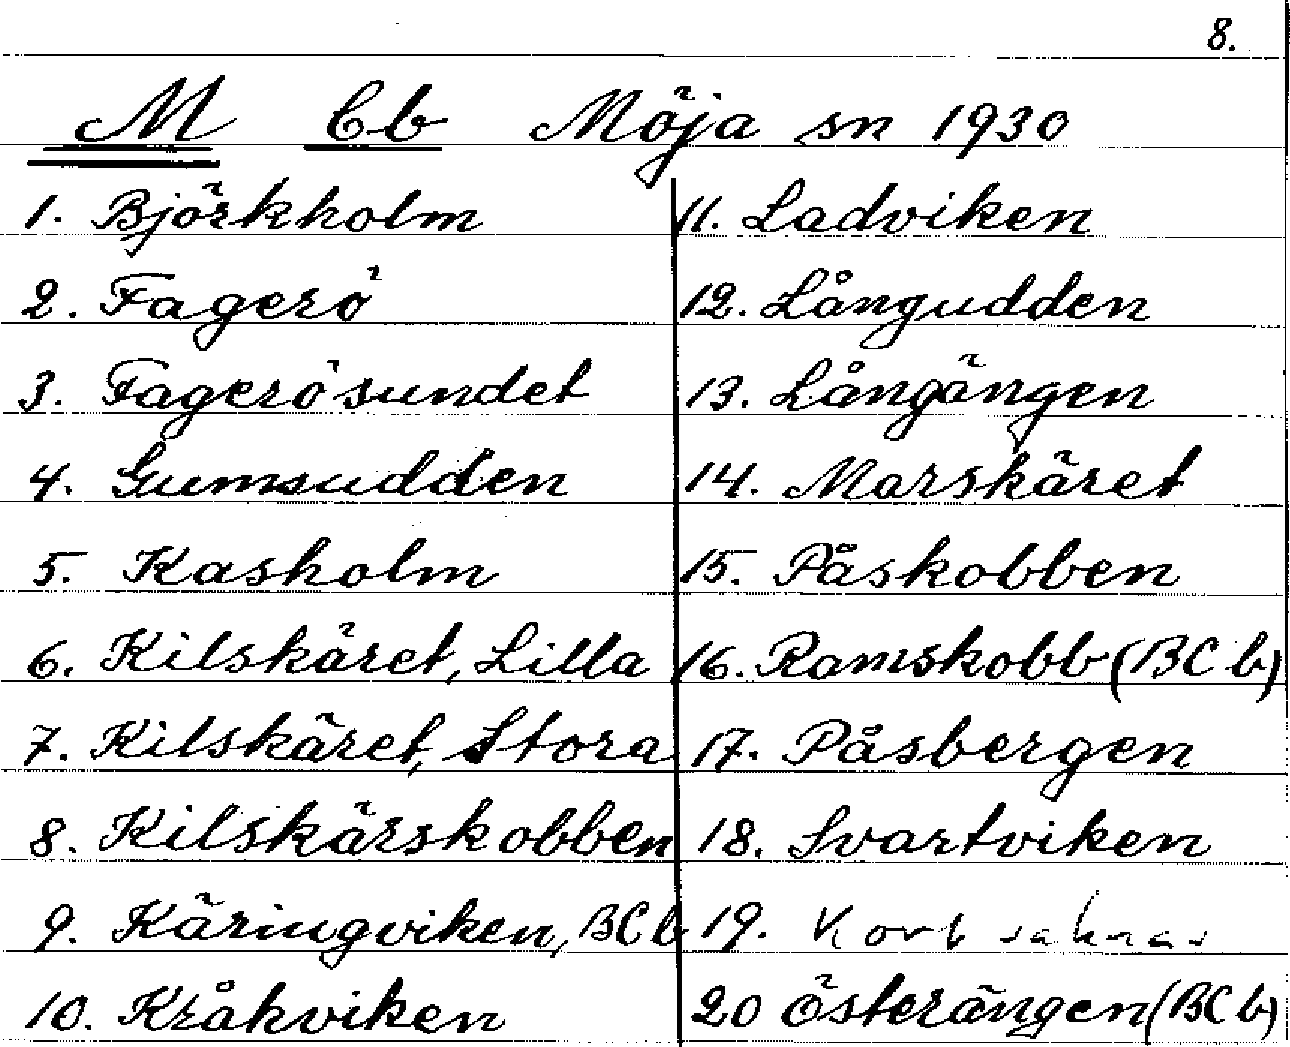 8.
M Cb Möja sn 1930
1. Björkholm
2. Fagerö
3. Fagerösundet
4. Gumsudden
5. Kasholm
6. Kilskäret, Lilla
7. Kilskäret, Stora
8. Kilskärskobben
9. Käringviken, BCb
10. Kråkviken
11. Ladviken
12. Långudden
13. Långängen
14. Morskäret
15. Påskobben
16. Ramskobb (BCb)
17. Påsbergen
18. Svartviken
19. Kort saknas
20 Österängen (BCb)